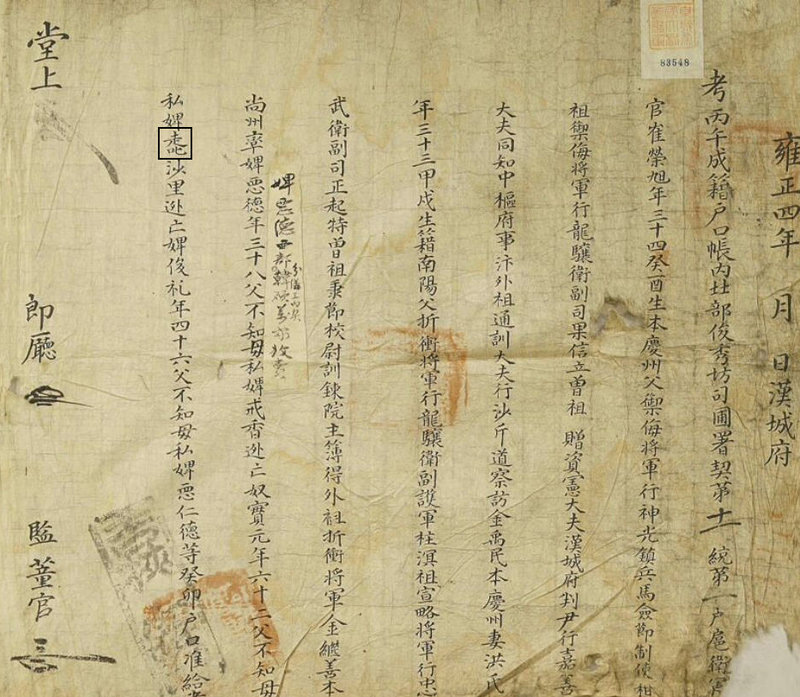 83548
雍正四年 月 日漢城府
考丙午成籍戶口帳內北部俊秀坊司圃署契第十一統第一戶扈衛軍
官崔榮旭年三十四癸酉生本慶州父禦侮將軍行神光鎮兵馬僉節制使
祖禦侮將軍行龍驤衛副司果信立曾祖 贈資憲大夫漢城府判尹行嘉善
大夫同知中樞府事汴外祖通訓大夫行沙斤道察訪金禹民本慶州妻洪氏
年三十三甲戌生籍南陽父折衝將軍行龍驤衛副護軍柱溟祖宣略將軍行忠
武衛副司正起特曾祖秉節校尉訓鍊院主簿得外祖折衝將軍金繼善本
婢惡德西部韓
尚州率婢惡德年三十八父不知母私婢戒香逃亡奴寶元年六十二父不知母
私婢沙里逃亡婢俊礼年四十六父不知母私婢惡仁德等癸卯戶口准給者
堂上 郎廳 監董官